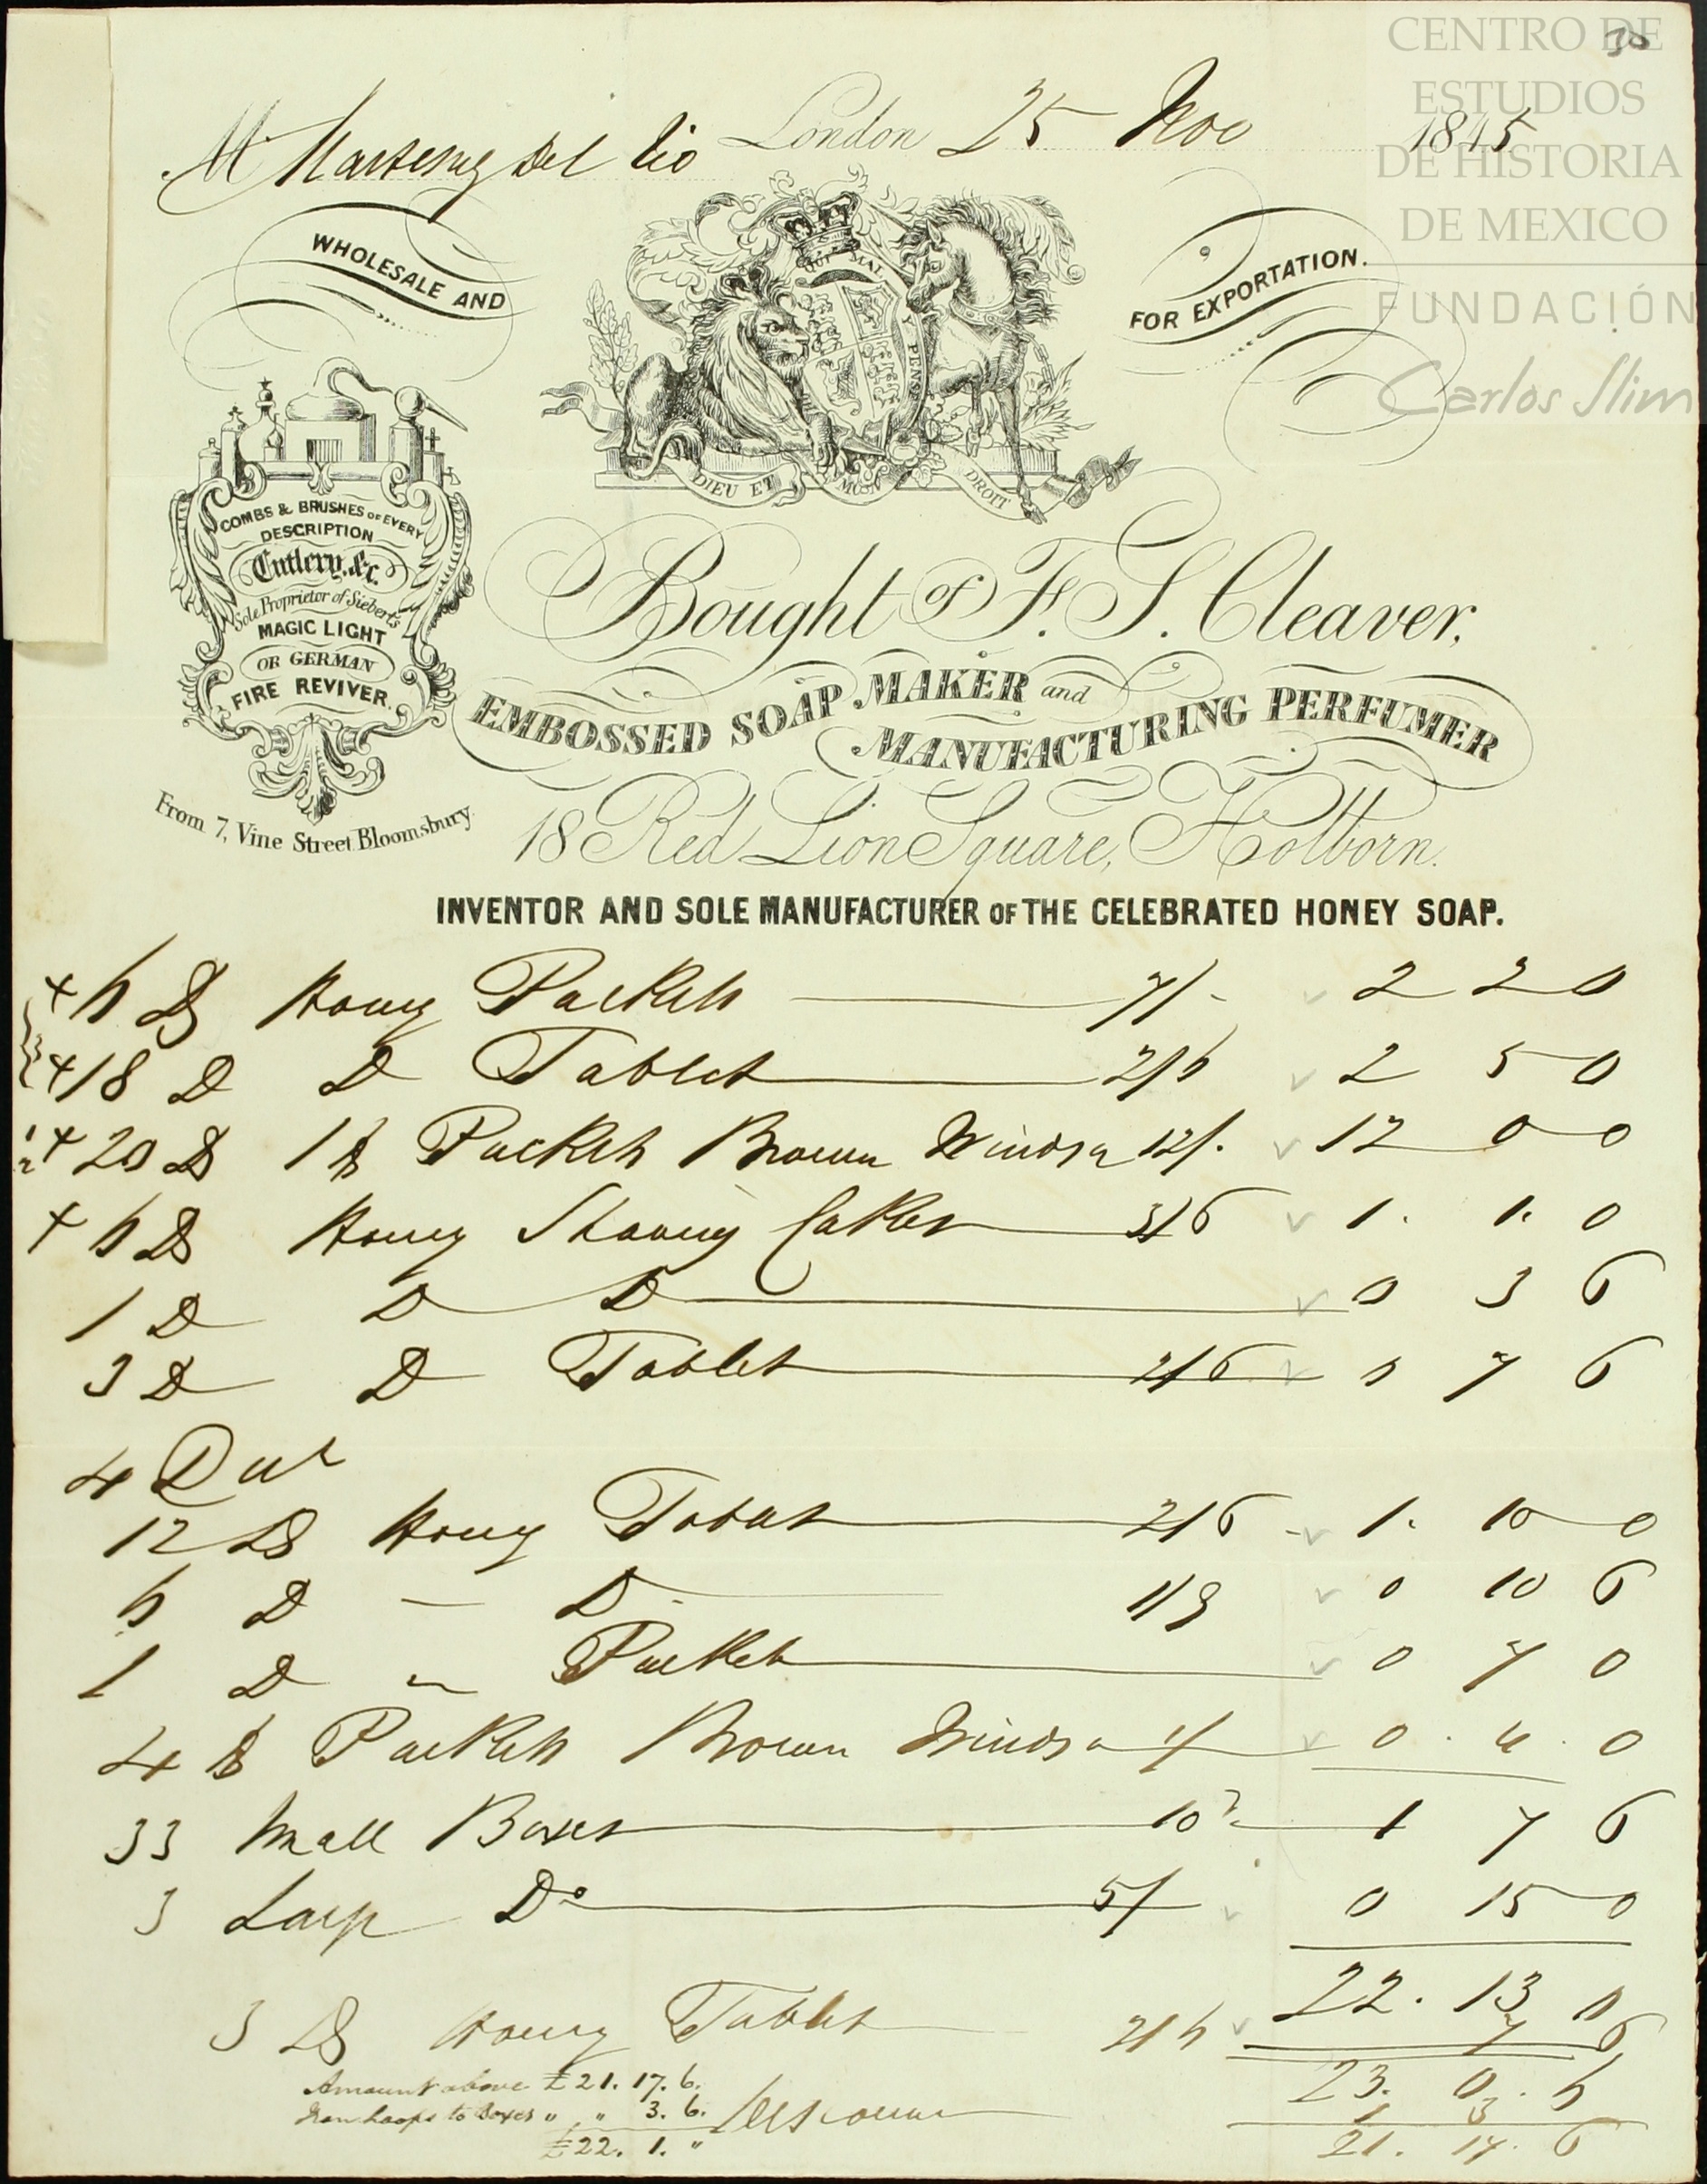 CENTRO DE
ESTUDIOS
DE HISTORIA
DE MEXICO
FUNDACIÓN
Carlos Slim
30
M Martinez Del Rio London 25 Nov 1845
WHOLESALE AND
FOR EXPORTATION.
QUI MAL Y PENSE
DIEU ET MON DROIT
COMBS & BRUSHES OF EVERY
DESCRIPTION
Cutlery, &c.
Sole Proprietor of Siebert's
MAGIC LIGHT
OR GERMAN
FIRE REVIVER.
From 7, Vine Street Bloomsbury.
Bought of F. S. Cleaver,
EMBOSSED SOAP MAKER and
MANUFACTURING PERFUMER
18 Red Lion Square, Holborn.
INVENTOR AND SOLE MANUFACTURER OF THE CELEBRATED HONEY SOAP.
+ 6 Dz Honey Packets 7/- 2 2 0
+ 18 D D Tablets 2/6 2 5 0
+ 20 Dz 1 lb Packets Brown Windsor 12/. 12 0 0
+ 6 Dz Honey Shaving Cakes 3/6 1. 1. 0
1 D D D 0 3 6
3 D D Tablets 2/6 0 7 6
4
12 Dz Honey Tablets 2/6 1. 10 0
6 D — D 1/9 0 10 6
1 D " Packets 0 7 0
4 lb Packets Brown Windsor 1/ 0. 4. 0
33 Small Boxes 10 1 7 6
3 Large Do 5/ 0 15 0
22. 13 0
3 Dz Honey Tablets 2/6 7 6
23. 0. 6
Amount above £21. 17. 6.
Iron hoops to Boxes " " 3. 6.
£22. 1. "
Discount 1 3
21. 17. 6